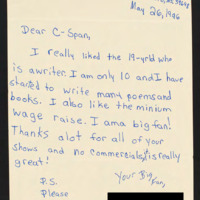 May 26, 1996
Dear C-Span,
I really liked the 19-yrld who
is a writer. I am only 10 and I have
started to write many poems and
books. I also like the minium
wage raise. I am a big fan!
Thanks alot for all of your
shows and no commercials, it's really
great!
Your Big
Fan,
P.S.
Please